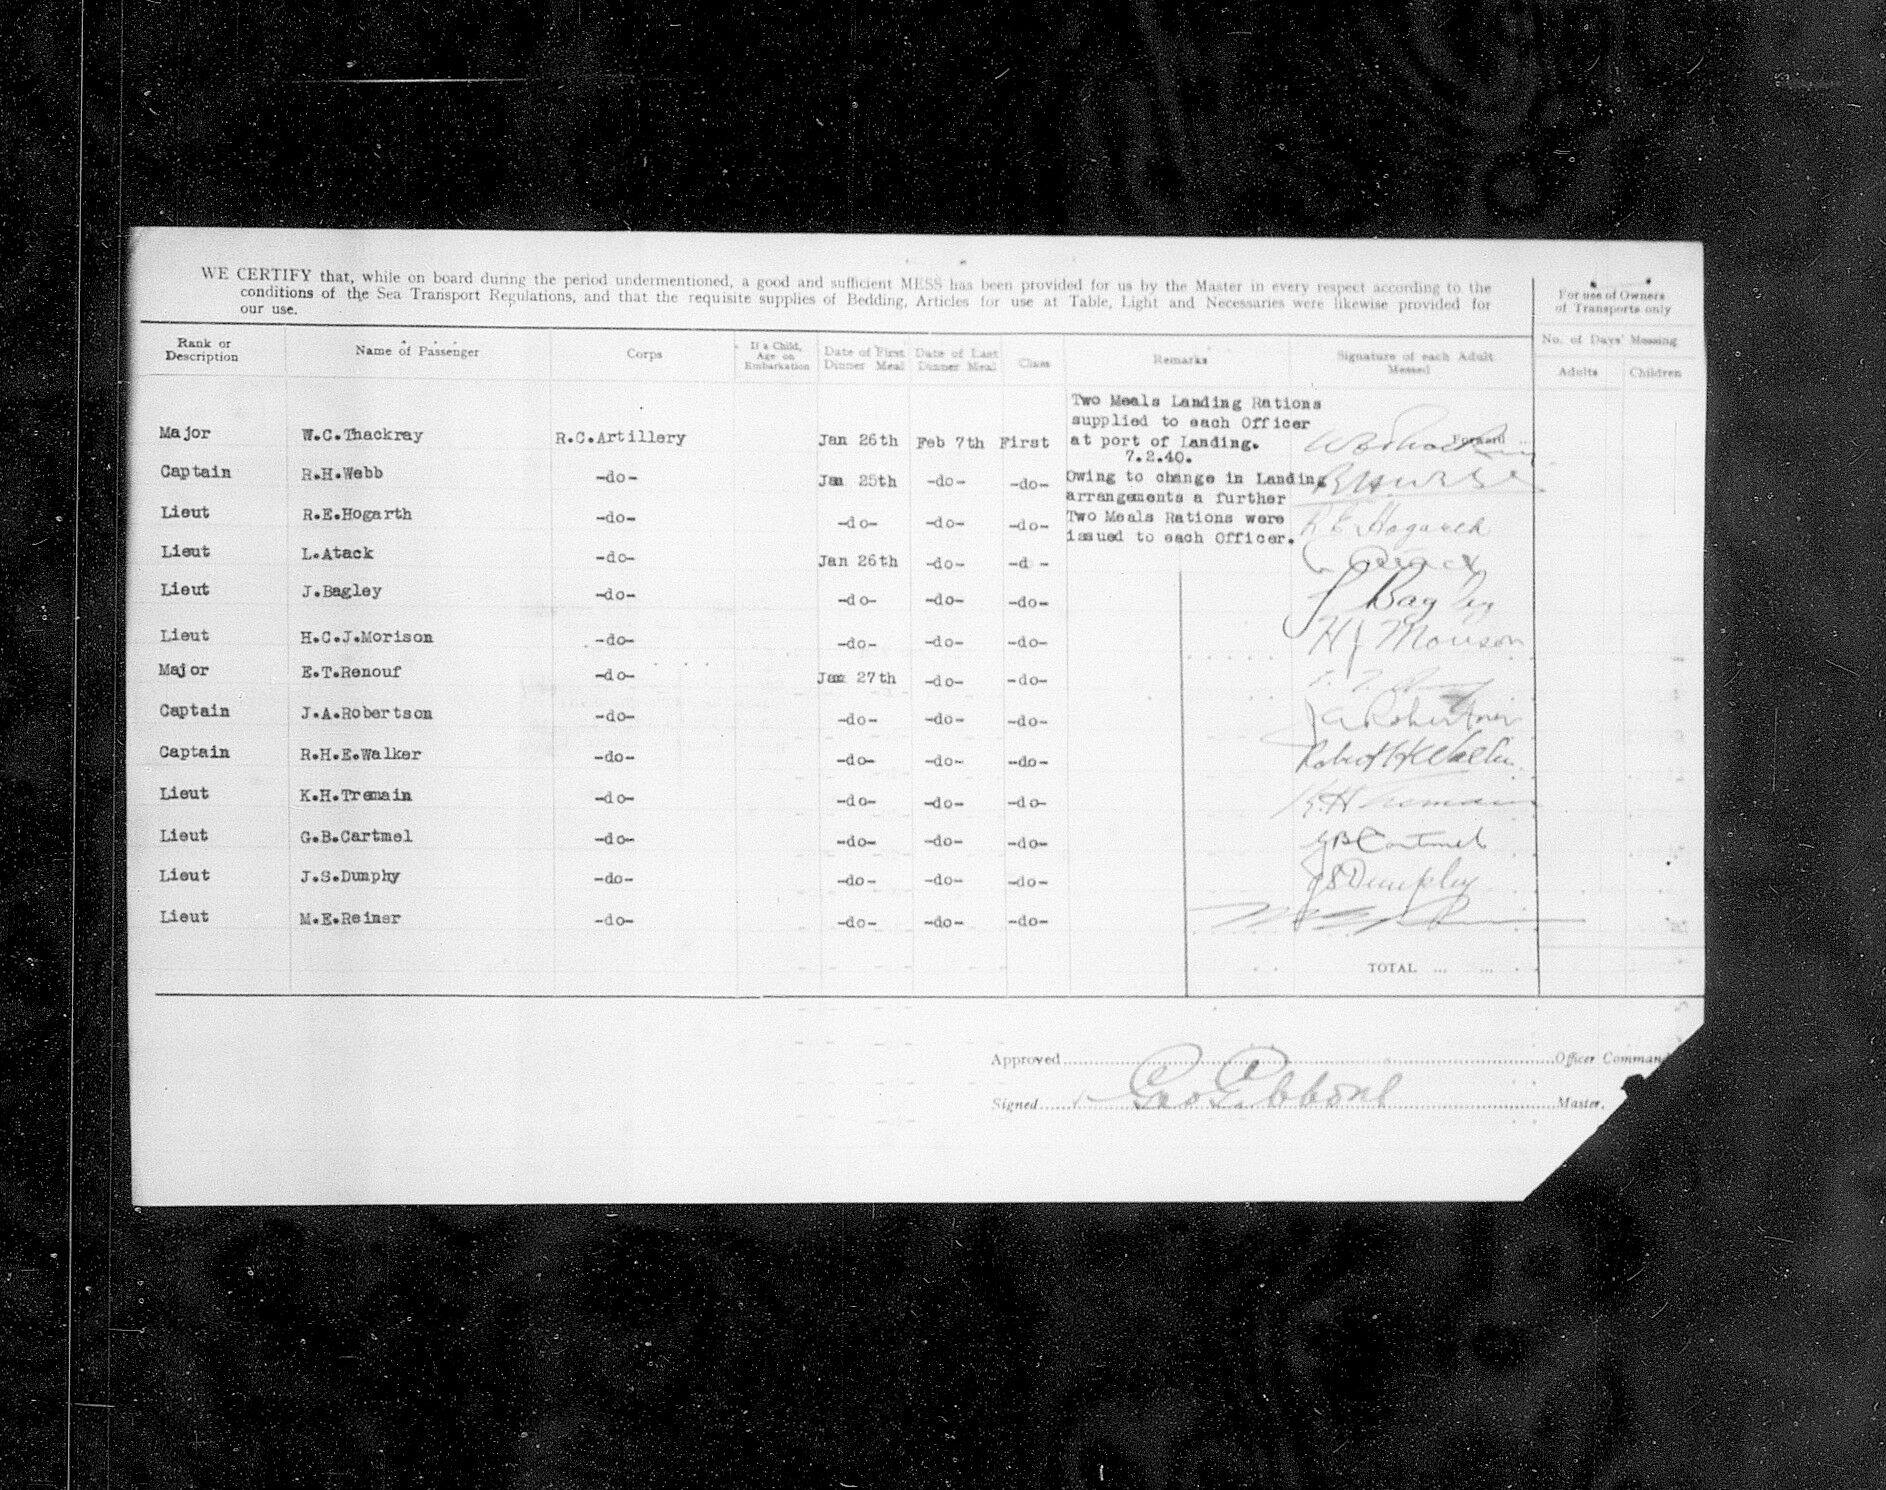 WE CERTIFY that, while on board during the period undermentioned, a good and sufficient MESS has been provided for us by the Master in every respect according to the
conditions of the Sea Transport Regulations, and that the requisite supplies of Bedding, Articles for use at Table, Light and Necessaries were likewise provided for
our use.
For use of Owners
of Transports only
Rank or
Description
Name of Passenger
Corps
If a Child,
Age on
Embarkation
Date of First
Dinner Meal
Date of Last
Dinner Meal
Class
Remarks
Signature of each Adult
Messed
No. of Days' Messing
Adults
Children
Two Meals Landing Rations
supplied to each Officer
at port of Landing.
7.2.40.
Owing to change in Landing
arrangements a further
Two Meals Rations were
issued to each Officer.
Forward ..
Major W.C.Thackray R.C.Artillery Jan 26th Feb 7th First
Captain R.H.Webb -do- Jan 25th -do- -do-
Lieut R.E.Hogarth -do- -do- -do- -do- R E Hogarth
Lieut L.Atack -do- Jan 26th -do- -d - L Atack
Lieut J.Bagley -do- -do- -do- -do- J Bagley
Lieut H.C.J.Morison -do- -do- -do- -do- H J Morison
Major E.T.Renouf -do- Jan 27th -do- -do-
Captain J.A.Robertson -do- -do- -do- -do- J A Robertson
Captain R.H.E.Walker -do- -do- -do- -do- Robert H E Walker
Lieut K.H.Tremain -do- -do- -do- -do- K H Tremain
Lieut G.B.Cartmel -do- -do- -do- -do- G B Cartmel
Lieut J.S.Dumphy -do- -do- -do- -do- J S Dumphy
Lieut M.E.Reiner -do- -do- -do- -do-
TOTAL ... ...
Approved Officer Command
Signed Geo Gibbons Master.